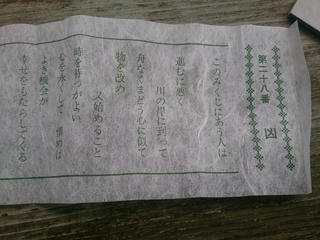 第二十八番 凶
このみくじにあう人は
進むに悪く
川の岸に到って
舟なくまどう心に似て
物を改め
又始めること
時を待つがよい
心を永くして 慎めば
よき機会が
幸せをもたらしてくる